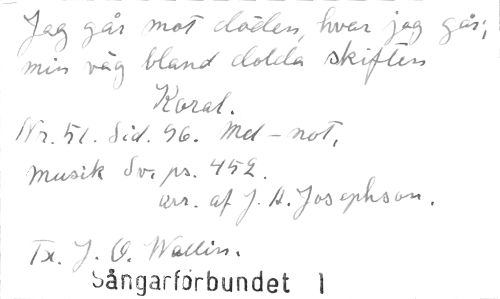 Jag går mot döden, hvar jag går;
min väg bland dolda skiften
Koral.
Nr. 51. Sid. 96. Mel-not,
musik Sv. ps. 452.
arr. af J. A. Josephson.
Tx. J. O. Wallin.
Sångarförbundet 1